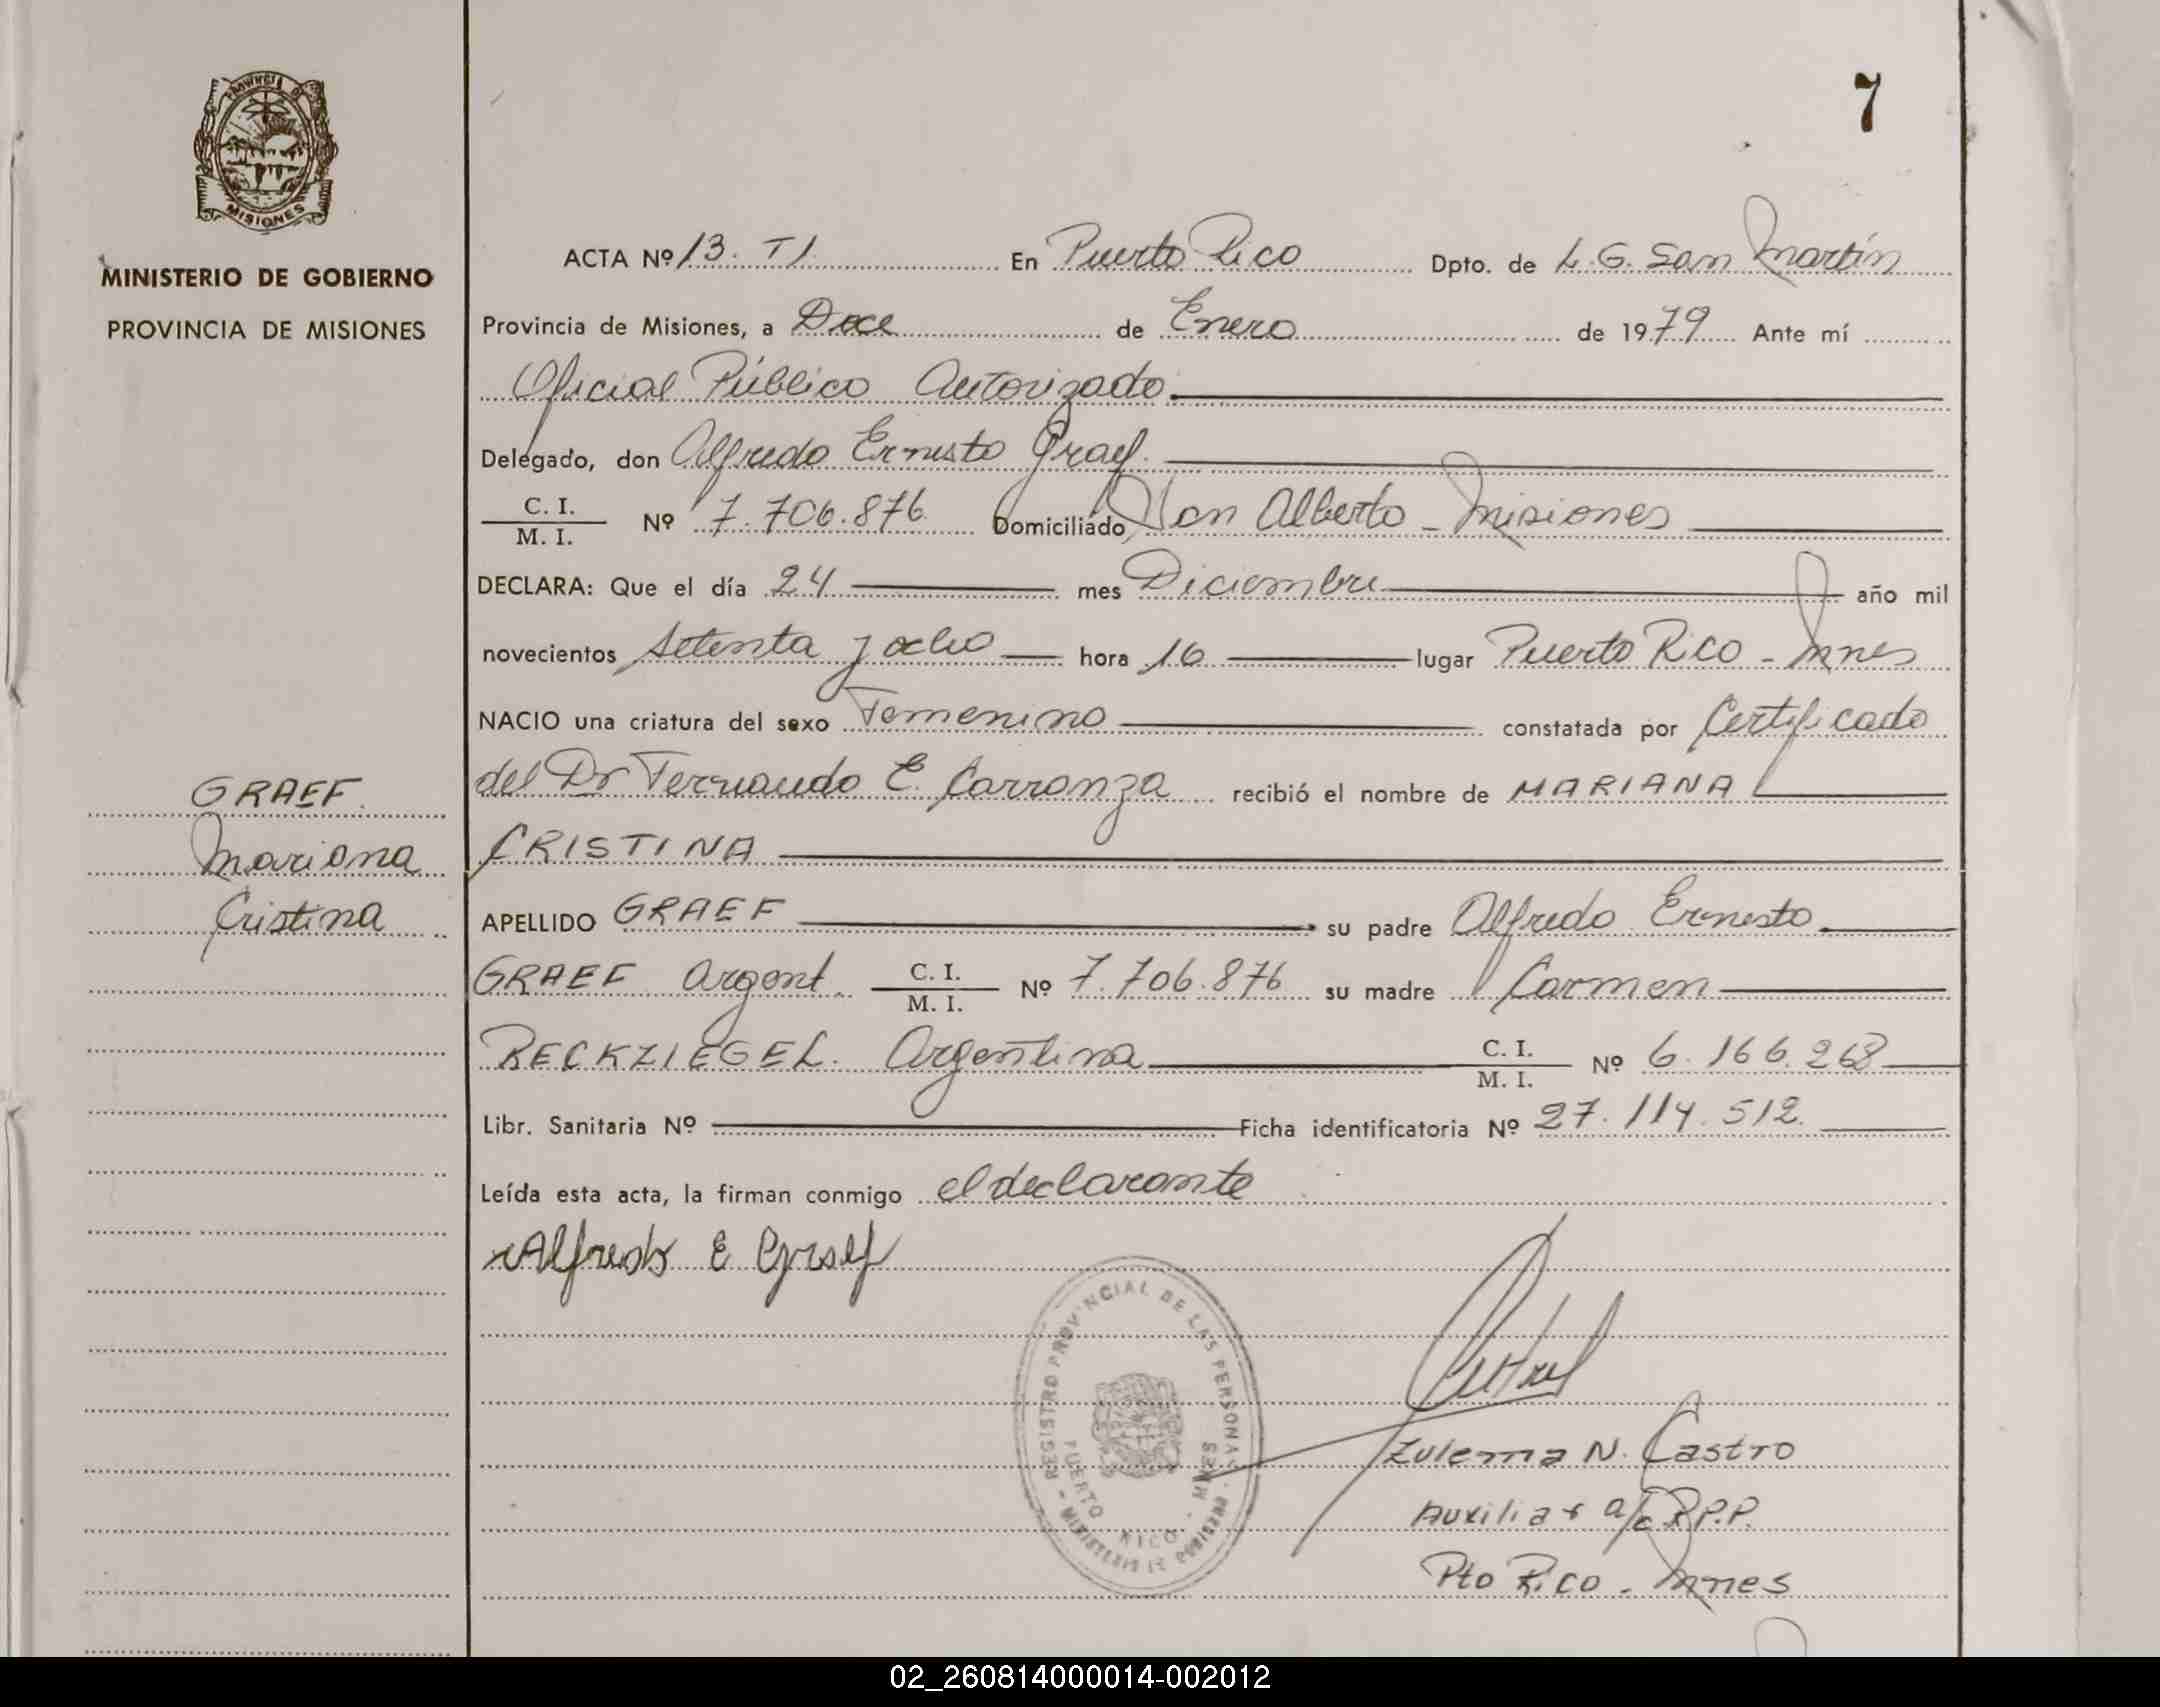 7
PROVINCIA D
MISIONES
MINISTERIO DE GOBIERNO
PROVINCIA DE MISIONES
GRAEF
Mariana
Cristina
ACTA Nº 13. T I. En Puerto Rico Dpto. de L. G. San Martín
Provincia de Misiones, a Doce de Enero de 1979 Ante mí
Oficial Público Autorizado
Delegado, don Alfredo Ernesto Graef.
C. I. / M. I. Nº 7.706.876 Domiciliado, Don Alberto - Misiones
DECLARA: Que el día 24 mes Diciembre año mil
novecientos setenta y ocho hora 16 lugar Puerto Rico - Mnes
NACIO una criatura del sexo Femenino constatada por Certificado
del Dr Fernando E. Carranza recibió el nombre de MARIANA
CRISTINA
APELLIDO GRAEF su padre Alfredo Ernesto
GRAEF Argent. C. I. / M. I. Nº 7.706.876 su madre Carmen
RECKZIEGEL. Argentina C. I. / M. I. Nº 6.166.268
Libr. Sanitaria Nº Ficha identificatoria Nº 27.114.512.
Leída esta acta, la firman conmigo el declarante
Alfredo E Graef
REGISTRO PROVINCIAL DE LAS PERSONAS - MINISTERIO DE GOBIERNO -
PUERTO RICO - MNES
Zulema N. Castro
Auxiliar a/c R.P.P.
Pto Rico - Mnes
02_260814000014-002012